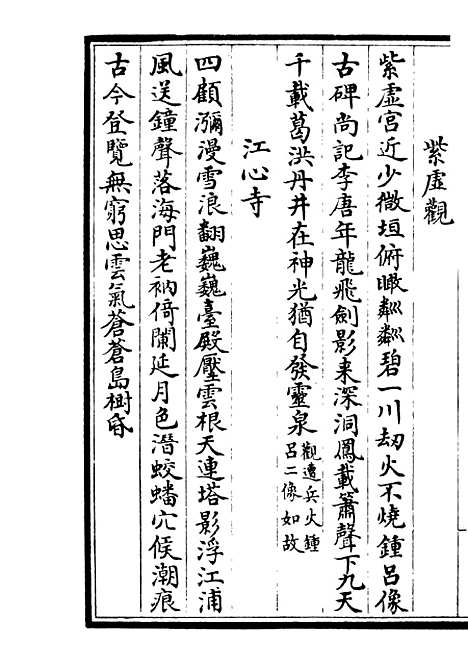 紫虛觀
紫虛宮近少微垣俯瞰粼粼碧一川劫火不燒鍾呂像
古碑尚記李唐年龍飛劍影來深洞鳳載簫聲下九天
千載葛洪丹井在神光猶自發靈泉觀遭兵火鍾呂二像如故
江心寺
四顧瀰漫雪浪翻巍巍臺殿壓雲根天連塔影浮江浦
風送鐘聲落海門老衲倚闌延月色潛蛟蟠穴候潮痕
古今登覽無窮思雲氣蒼蒼島樹昏